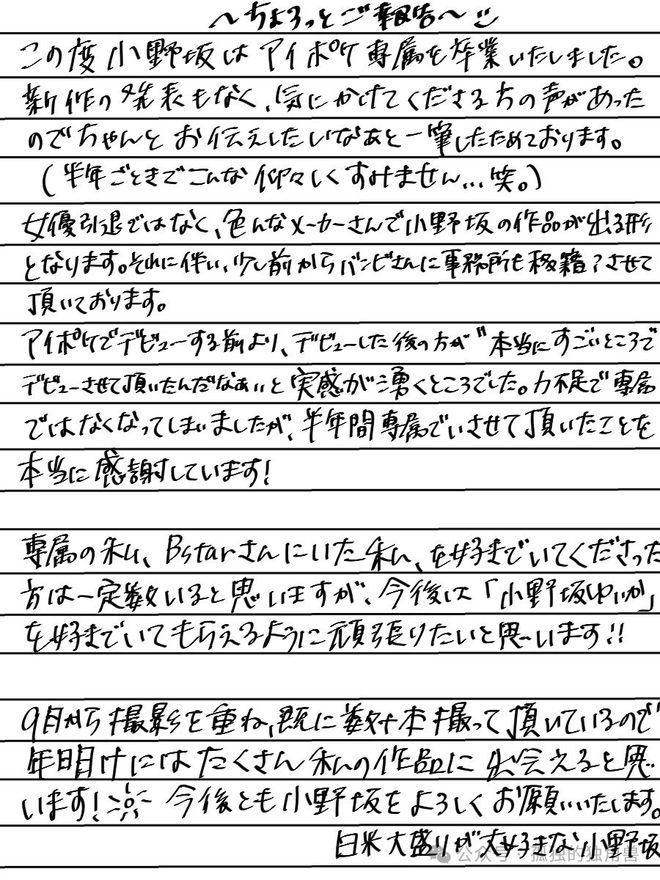 〜ちょろっとご報告〜
この度小野坂はアイポケ専属を卒業いたしました。
新作の発表もなく、気にかけてくださる方の声があった
のでちゃんとお伝えしたいなあと一筆したためております。
(半年ごときでこんな仰々しくすみません...笑。)
女優引退ではなく、色んなメーカーさんで小野坂の作品が出る形
となります。それに伴い、少し前からバンビさんに事務所も移籍?させて
頂いております。
アイポケでデビューする前より、デビューした後の方が"本当にすごいところで
デビューさせて頂いたんだなぁ"と実感が湧くところでした。力不足で専属
ではなくなってしまいましたが、半年間専属でいさせて頂いたことを
本当に感謝しています!
専属の私、Bstarさんにいた私、を好きでいてくださった
方は一定数いると思いますが、今後は「小野坂ゆいか」
を好きでいてもらえるように頑張りたいと思います!!
9月から撮影を重ね、既に数十本撮って頂いているので
年明けにはたくさん私の作品に出会えると思
います! 今後とも小野坂をよろしくお願いいたします。
白米大盛りが大好きな小野坂
公众号·孤独的独角兽